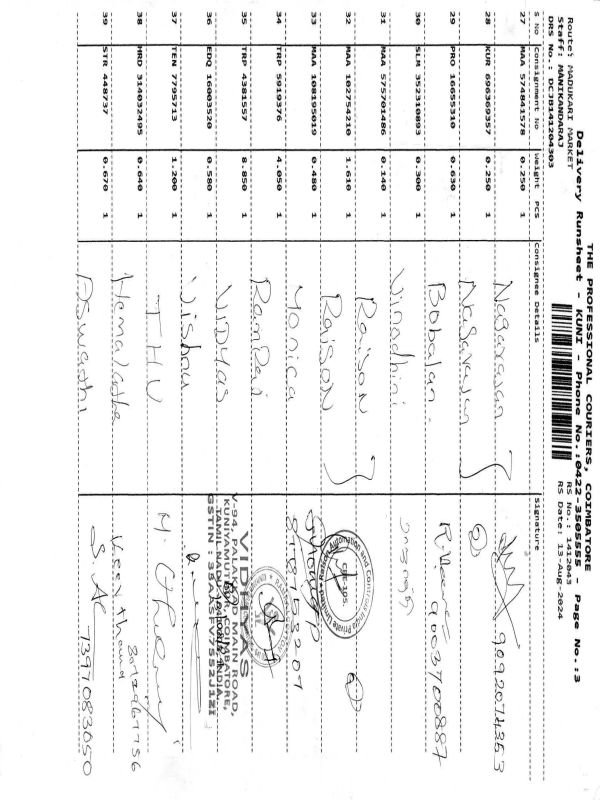 THE PROFESSIONAL COURIERS, COIMBATORE
Delivery Runsheet - KUNI - Phone No.:0422-3505555 - Page No.:3
Route: MADUKARI MARKET
Staff: MANIKANDARAJ
DRS No.: DC3B141204303
RS No.: 1412043
RS Date: 13-Aug-2024
S No Consignment No Weight PCS Consignee Details Signature
27 MAA 574841578 0.250 1 Nagarajan 9092074353
28 KUR 696369357 0.250 1 Nagarajan
29 PRO 16655310 0.630 1 Bobalan. 9003700887
30 SLM 352310893 0.300 1 Vinodhini
31 MAA 575701486 0.140 1 Raison
32 MAA 102754210 1.610 1 Raison
33 MAA 108195019 0.480 1 Monica
34 TRP 5919376 4.050 1 RamRaj
35 TRP 4381557 8.850 1 VIDHYAS
36 EDQ 16003520 0.580 1 Vishnu
37 TEN 7795713 1.200 1 THU
38 HRD 314032495 0.640 1 Hemalatha
39 STR 448737 0.670 1 Aswathi 7397083050
CBE-105.
VIDHYAS
V-94, PALAKKAD MAIN ROAD,
KUNIYAMUTHUR, COIMBATORE,
TAMIL NADU